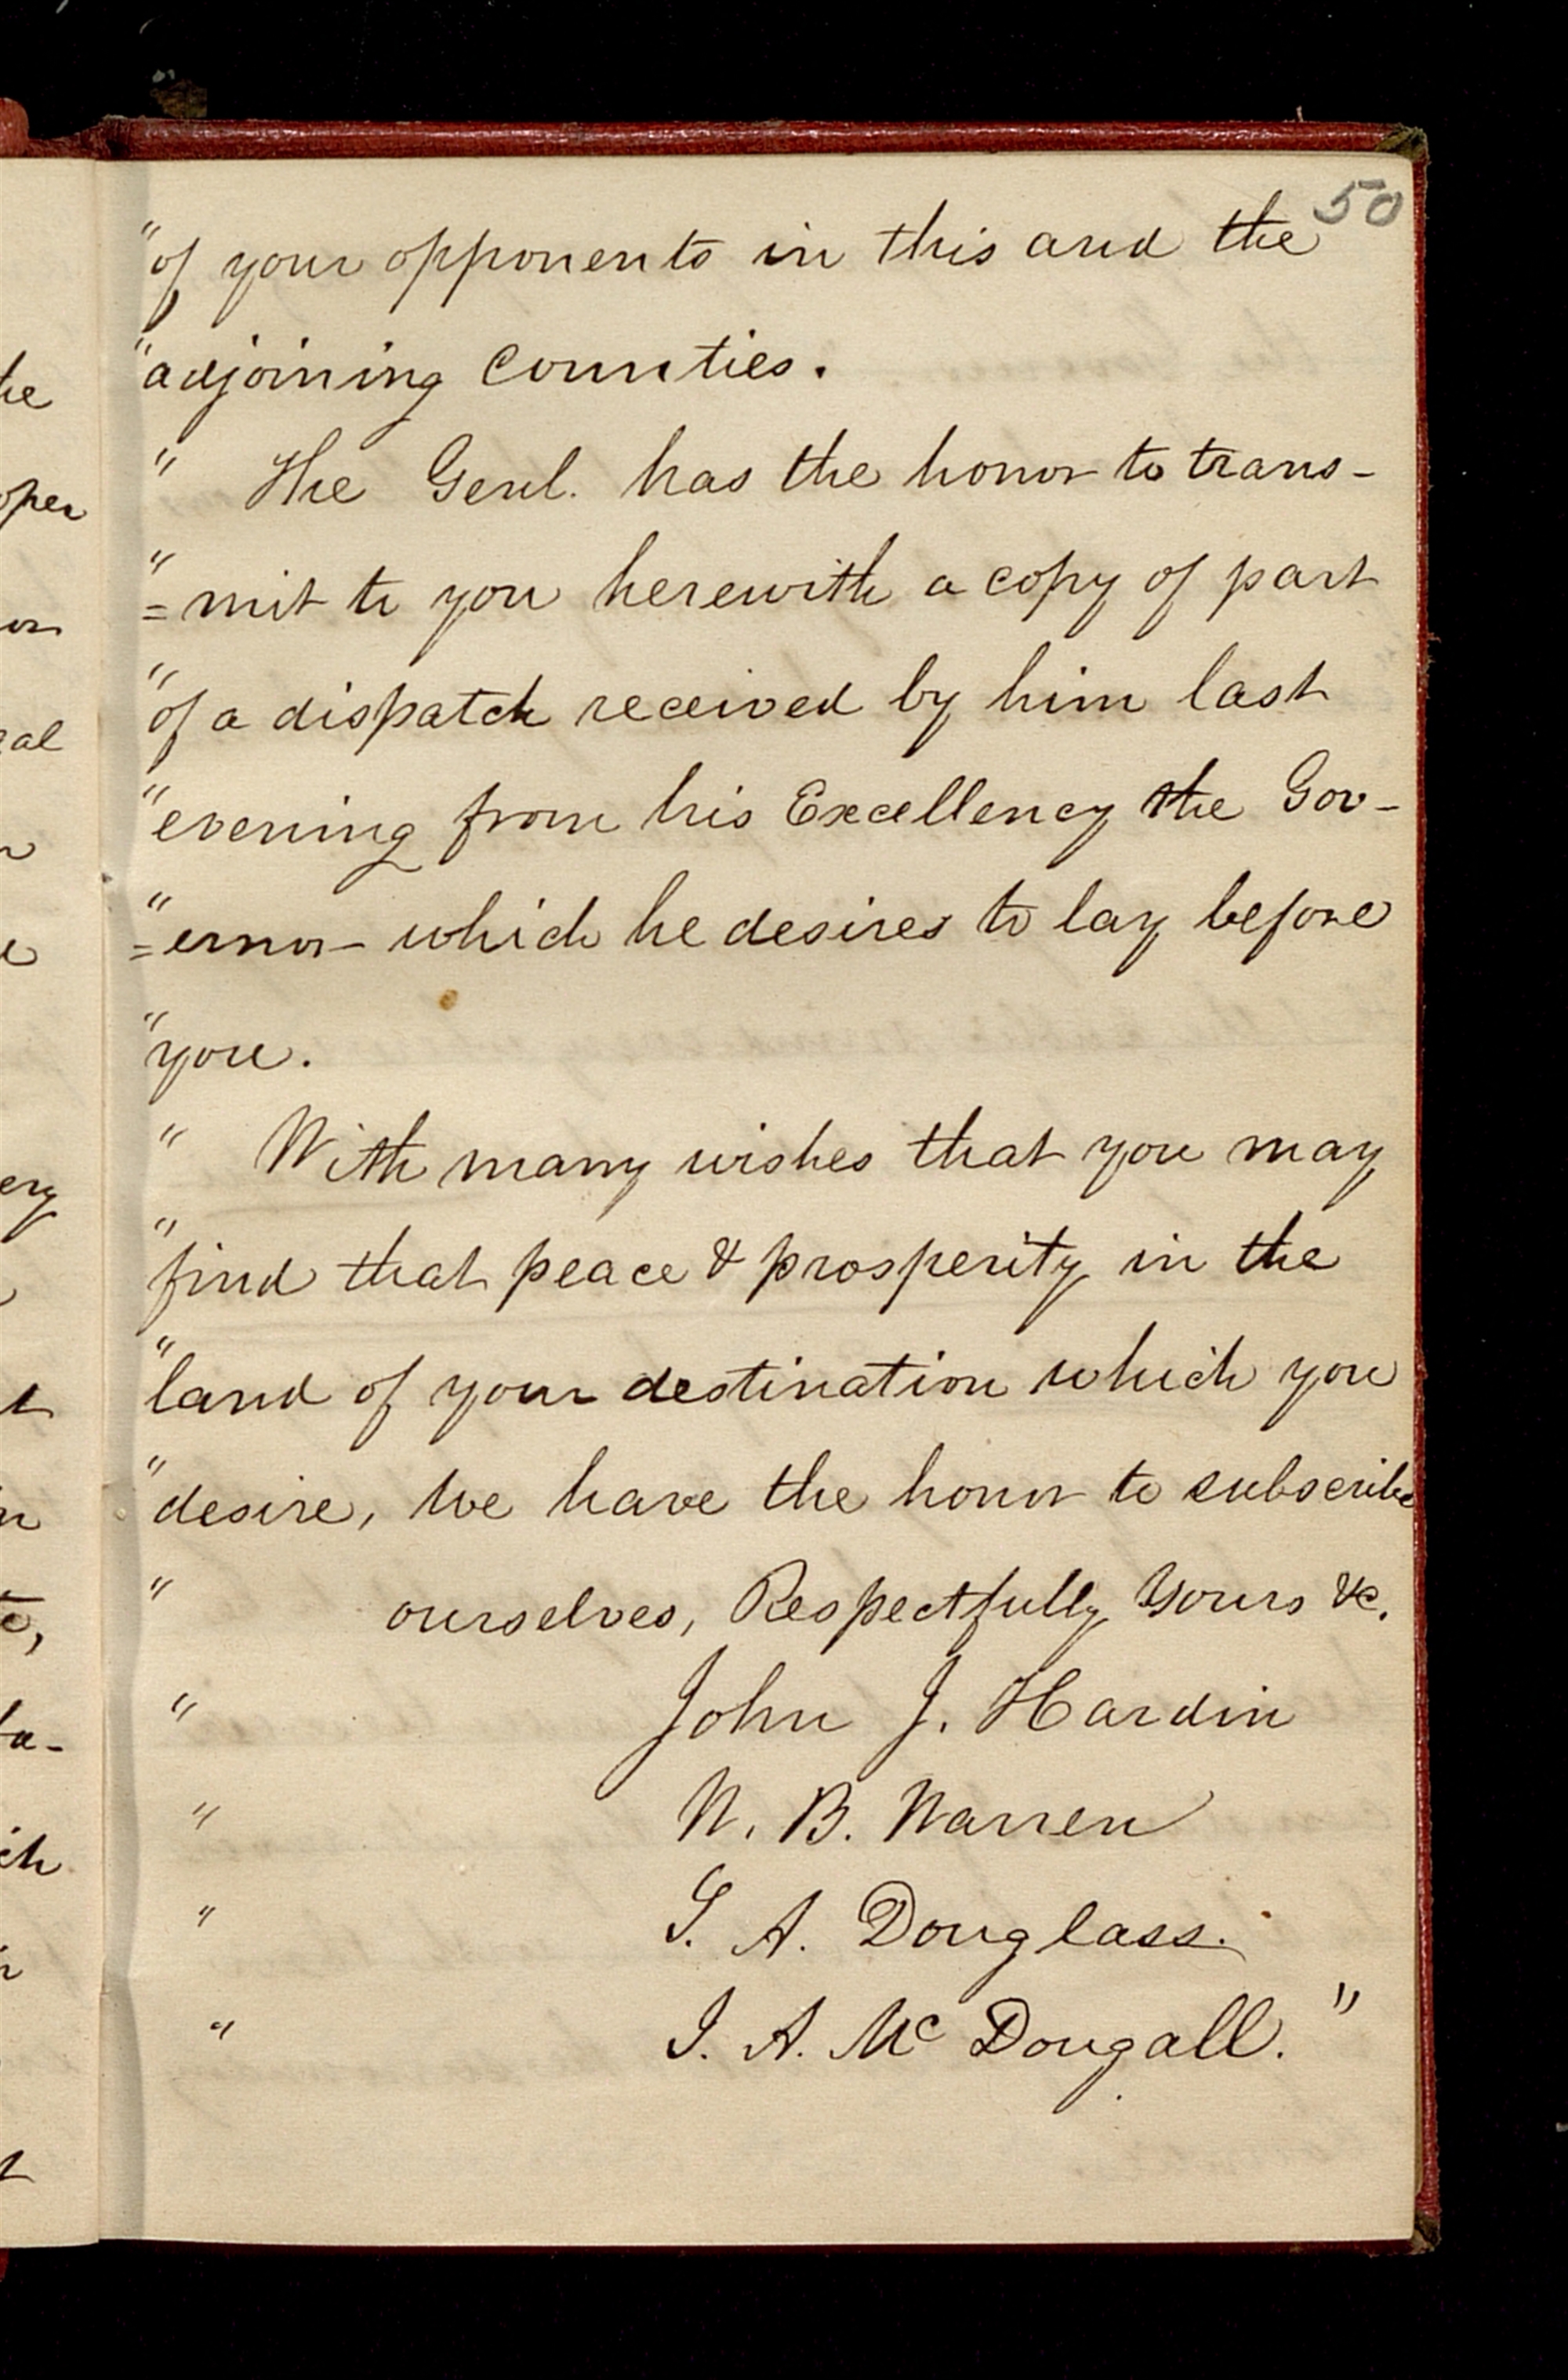 50
"of your opponents in this and the
"adjoining Counties.
" The Genl. has the honor to trans-
"=mit to you herewith a copy of part
"of a dispatch received by him last
"evening from his Excellency the Gov-
"=ernor which he desires to lay before
"you.
" With many wishes that you may
"find that peace & prosperity in the
"land of your destination which you
"desire, we have the honor to subscribe
" ourselves, Respectfully Yours &c.
" John J. Hardin
" W. B. Warren
" S. A. Douglass.
" J. A. Mc Dougall."